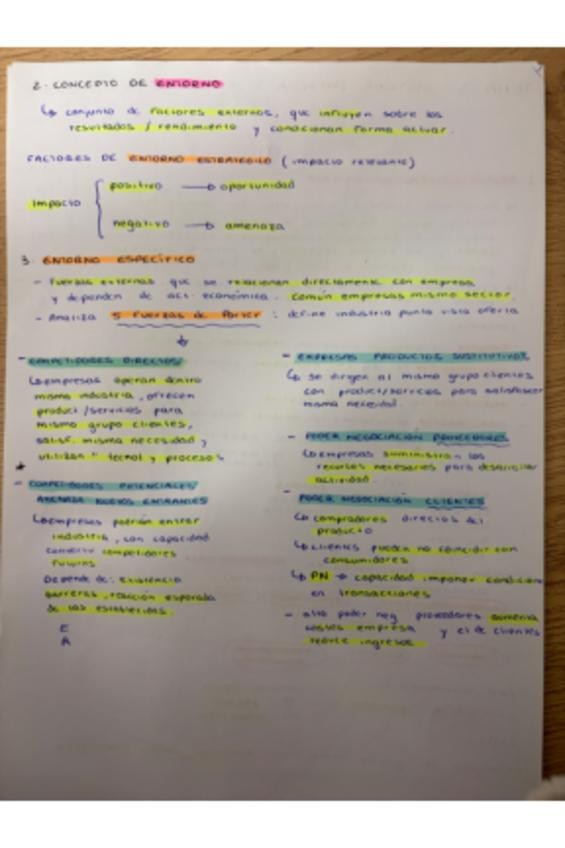 2. CONCEPTO DE ENTORNO
↳ conjunto de factores externos, que influyen sobre los
resultados / rendimiento y condicionan forma actuar.
FACTORES DE ENTORNO ESTRATÉGICO (impacto relevante)
Impacto
positivo → oportunidad
negativo → amenaza
3. ENTORNO ESPECÍFICO
- Fuerzas externas que se relacionan directamente con empresa
y dependen de act. económica. Común empresas mismo sector.
- Analiza 5 Fuerzas de Porter : define industria punto vista oferta
- COMPETIDORES DIRECTOS
↳ empresas operan dentro
misma industria, ofrecen
product/servicios para
mismo grupo clientes,
satisf. misma necesidad y
utilizan tecnol y procesos
- COMPETIDORES POTENCIALES
AMENAZA NUEVOS ENTRANTES
↳ empresas podrían entrar
industria, con capacidad
competidores
futuros
Depende de: existencia
barreras, reacción esperada
de las establecidas.
E
A
- EMPRESAS PRODUCTOS SUSTITUTIVOS
↳ se dirigen al mismo grupo clientes
con product/servicios para satisfacer
misma necesidad.
- PODER NEGOCIACIÓN PROVEEDORES
↳ empresas suministran los
recursos necesarios para desarrollar
actividad.
- PODER NEGOCIACIÓN CLIENTES
↳ compradores directos del
producto
↳ clientes pueden no coincidir con
consumidores
↳ PN → capacidad imponer condicione
en transacciones
- alto poder neg proveedores aumenta
costes empresa y el de clientes
reduce ingresos